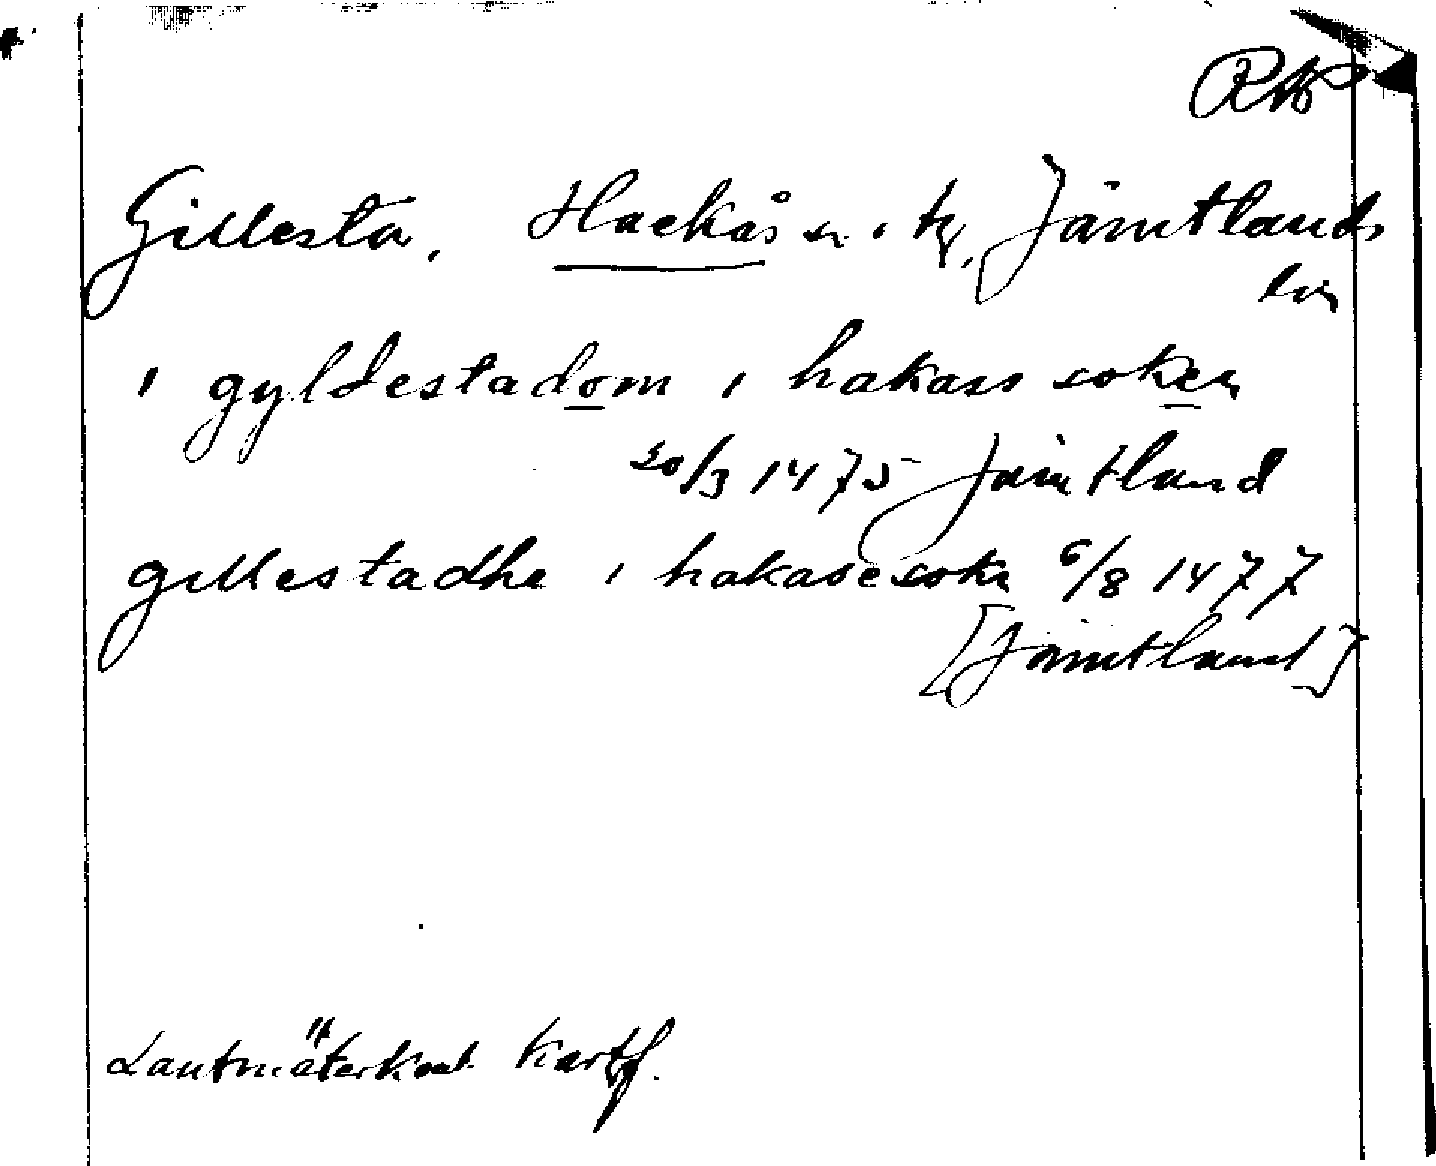 RAP
Gillesta, Hackås sn o. tg, Jämtlands
län
i gyldestadom i hakass soken
20/3 1475 Jämtland
gillestadhe i hakasesokn 6/8 1477
[Jämtland]
Lantmäterkont. Kartf.